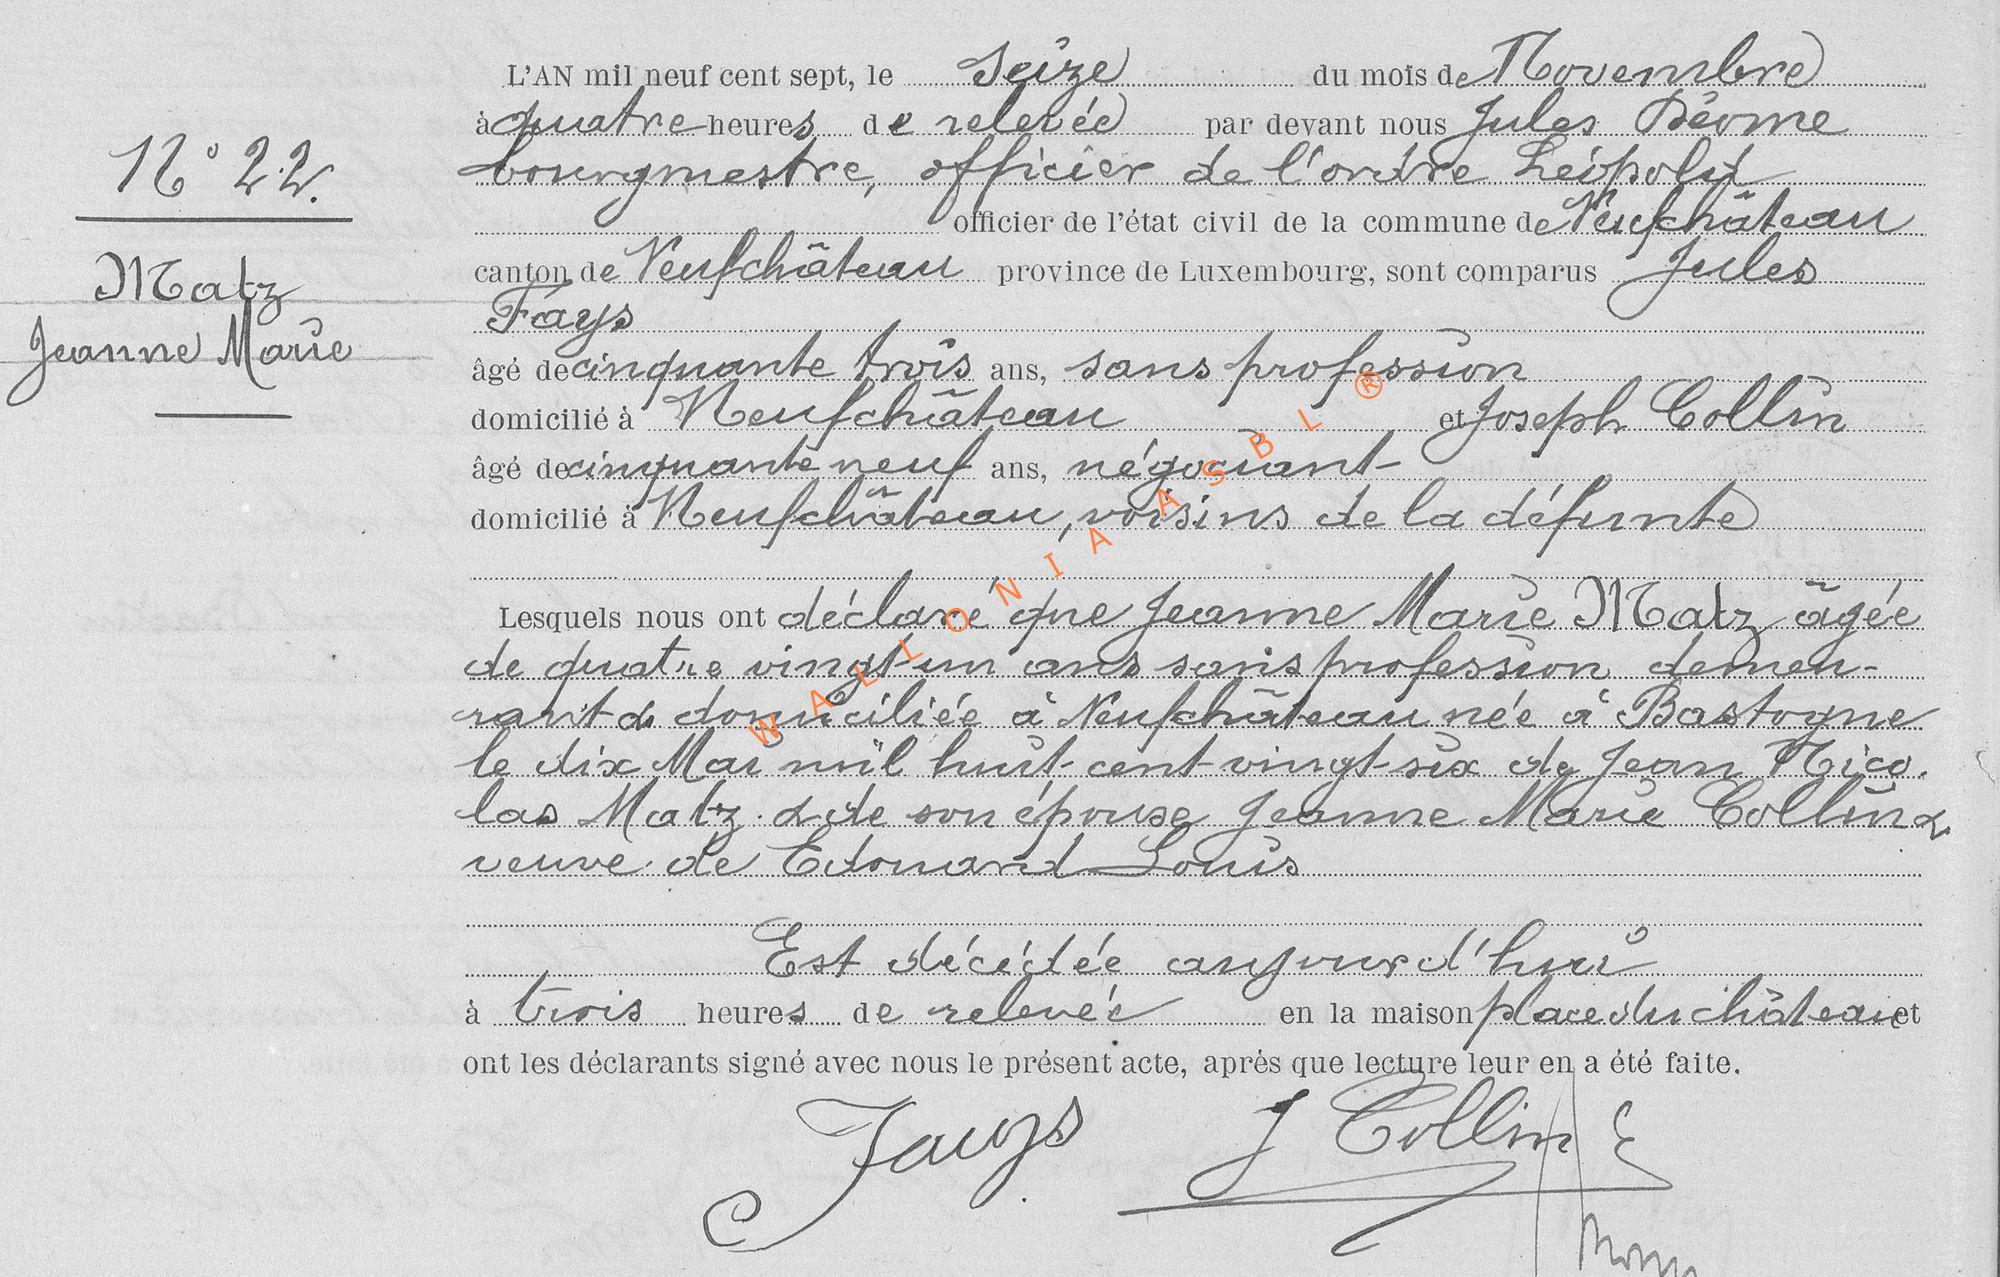 N° 22.
Matz
Jeanne Marie
L'AN mil neuf cent sept, le seize du mois de Novembre
à quatre heures de relevée par devant nous Jules Déome
bourgmestre, officier de l'ordre Léopold
officier de l'état civil de la commune de Neufchâteau
canton de Neufchâteau province de Luxembourg, sont comparus Jules
Fays
âgé de cinquante trois ans, sans profession
domicilié à Neufchâteau et Joseph Collin
âgé de cinquante neuf ans, négociant
domicilié à Neufchâteau, voisins de la défunte
Lesquels nous ont déclaré que Jeanne Marie Matz âgée
de quatre vingt-un ans sans profession demeu-
rant & domiciliée à Neufchâteau née à Bastogne
le dix Mai mil huit-cent-vingt-six de Jean Nico.
las Matz & de son épouse Jeanne Marie Collin &
veuve de Edouard Louis
Est décédée aujourd'hui
à trois heures de relevée en la maison place du château et
ont les déclarants signé avec nous le présent acte, après que lecture leur en a été faite.
Fays J Collin
WALLONIA ASBL ®